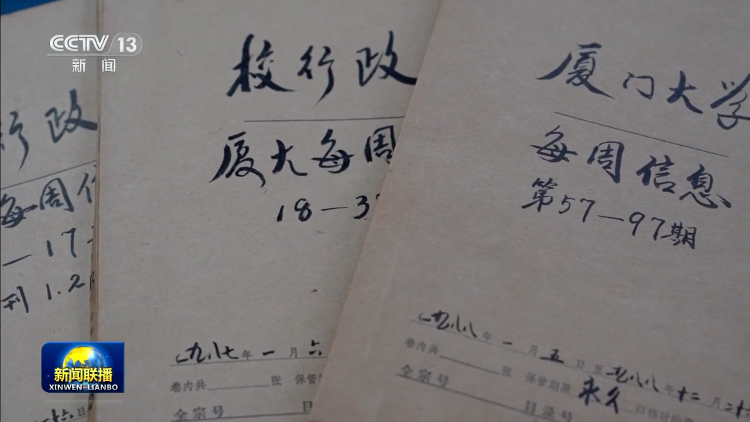 CCTV 13
新闻
行政
每周信
—17
刊1.2
校行政
厦大每周
18—3
一九八七年一月六
卷内共 张 保管
全宗号
厦门大学
每周信息
第57—97期
一九八八年一月五日至一九八八年十二月二十
卷内共 张 保管期限 永久
全宗号 目录号
新闻联播
XINWEN-LIANBO